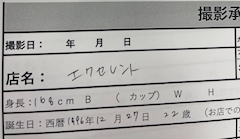 撮影承
撮影日: 年 月 日
店名: エクセレント
身長:168cm B ( カップ) W H
誕生日:西暦1996年12月27日 22歳 (お店での